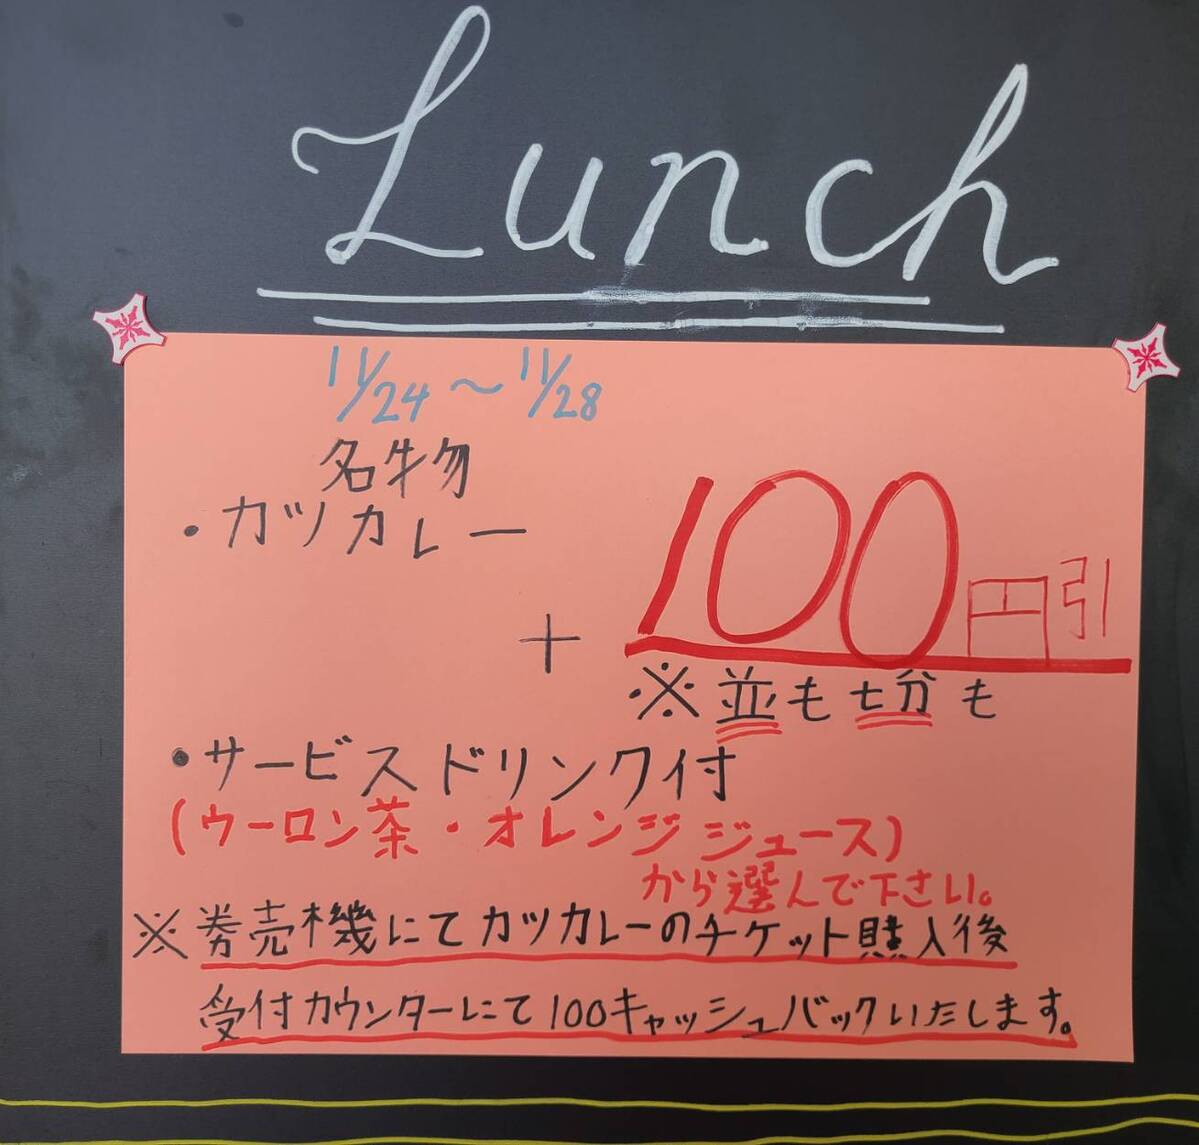 Lunch
11/24〜11/28
名物
・カツカレー
+ 100円引
※並も七分も
・サービスドリンク付
(ウーロン茶・オレンジジュース)
から選んで下さい。
※券売機にてカツカレーのチケット購入後
受付カウンターにて100キャッシュバックいたします。